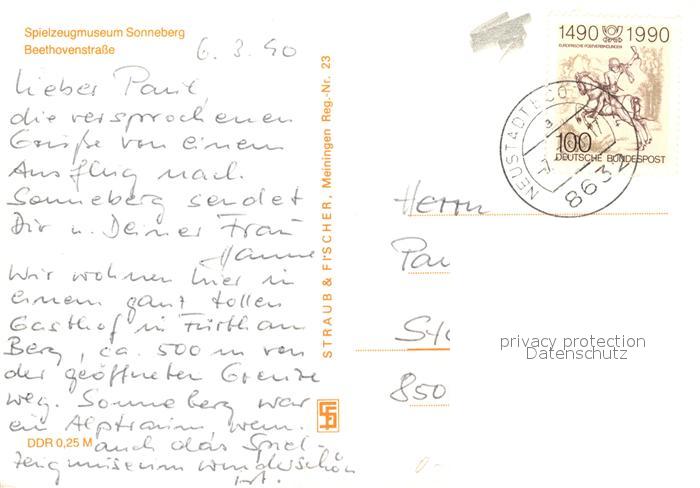 Spielzeugmuseum Sonneberg
Beethovenstraße
6.3.90
Lieber Paul,
die versprochenen
Grüße von einem
Ausflug nach
Sonneberg sendet
Dir u. Deiner Frau
Hanne
Wir wohnen hier in
einem ganz tollen
Gasthof in Fürth am
Berg, ca. 500 m von
der geöffneten Grenze
weg. Sonneberg war
ein Alptraum, wenn
auch das Spiel-
zeugmuseum wunderschön
ist.
DDR 0,25 M
STRAUB & FISCHER, Meiningen Reg.-Nr. 23
1490 1990
EUROPÄISCHE POSTVERBINDUNGEN
100
DEUTSCHE BUNDESPOST
NEUSTADT B CO
8632
Herrn
Pau
St
850
privacy protection
Datenschutz